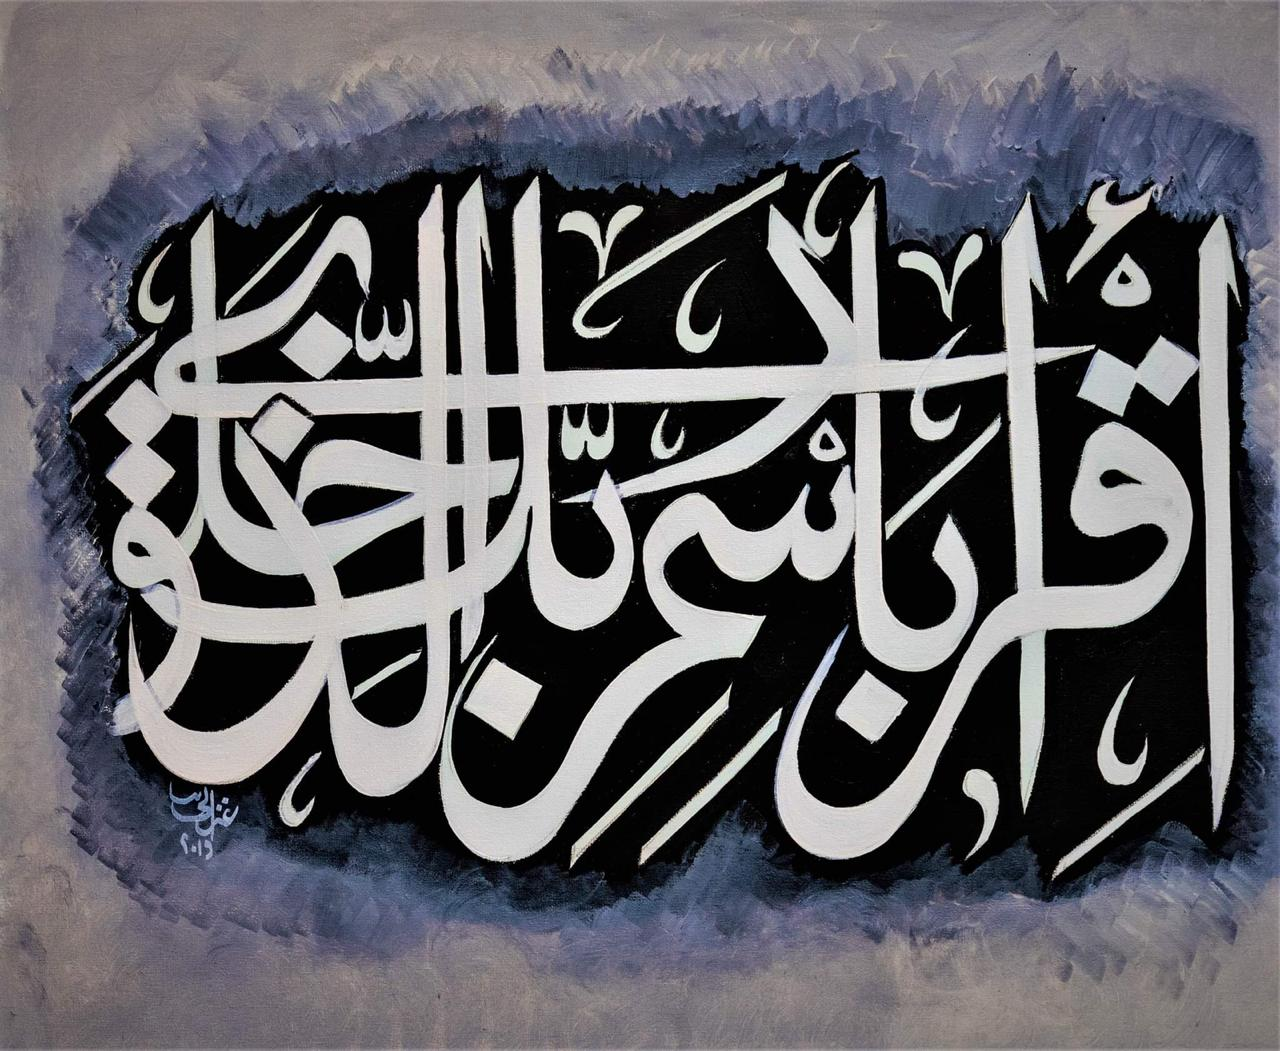 اِقْرَأْ بِاسْمِ رَبِّكَ الَّذِي خَلَقَ
٢٠١٩